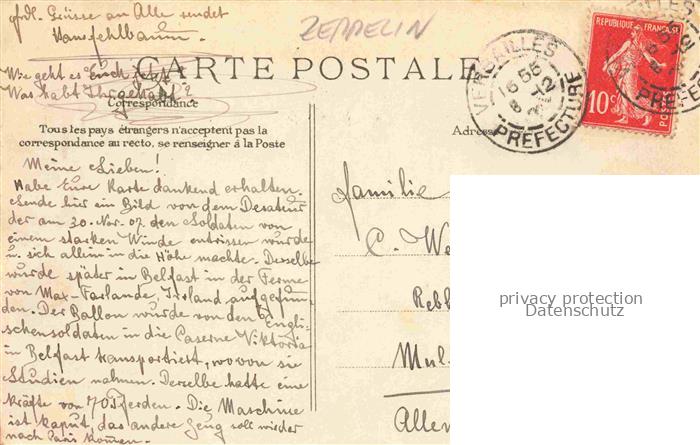 Frdl. Grüsse an Alle sendet
Hans Fehlbaum.
ZEPPELIN
Wie geht es Euch
Was habt Ihr gehabt?
CARTE POSTALE
Correspondance
Tous les pays étrangers n'acceptent pas la
correspondance au recto, se renseigner à la Poste
Adres
VERSAILLES
PREFECTURE
REPUBLIQUE FRANCAISE
10c
POSTES
Meine Lieben!
Habe Eure Karte dankend erhalten.
Sende hier ein Bild von dem
der am 30. Nov. 07 den Soldaten von
einem starken Winde entrissen wurde
u. sich allein in die Höhe machte. Derselbe
wurde später in Belfast in der Ferme
von Max-Farlande, Irland aufgefun-
den. Der Ballon wurde von den Engli-
schensoldaten in die Caserne Viktoria
in Belfast transportiert, wovon sie
Studien nahmen. Derselbe hatte eine
kräfte von 70 Pferden. Die Maschine
ist kaput, das andere Zeug soll wieder
nach Paris kommen.
Familie
C. We
Rebb
Mul
Aller
privacy protection
Datenschutz